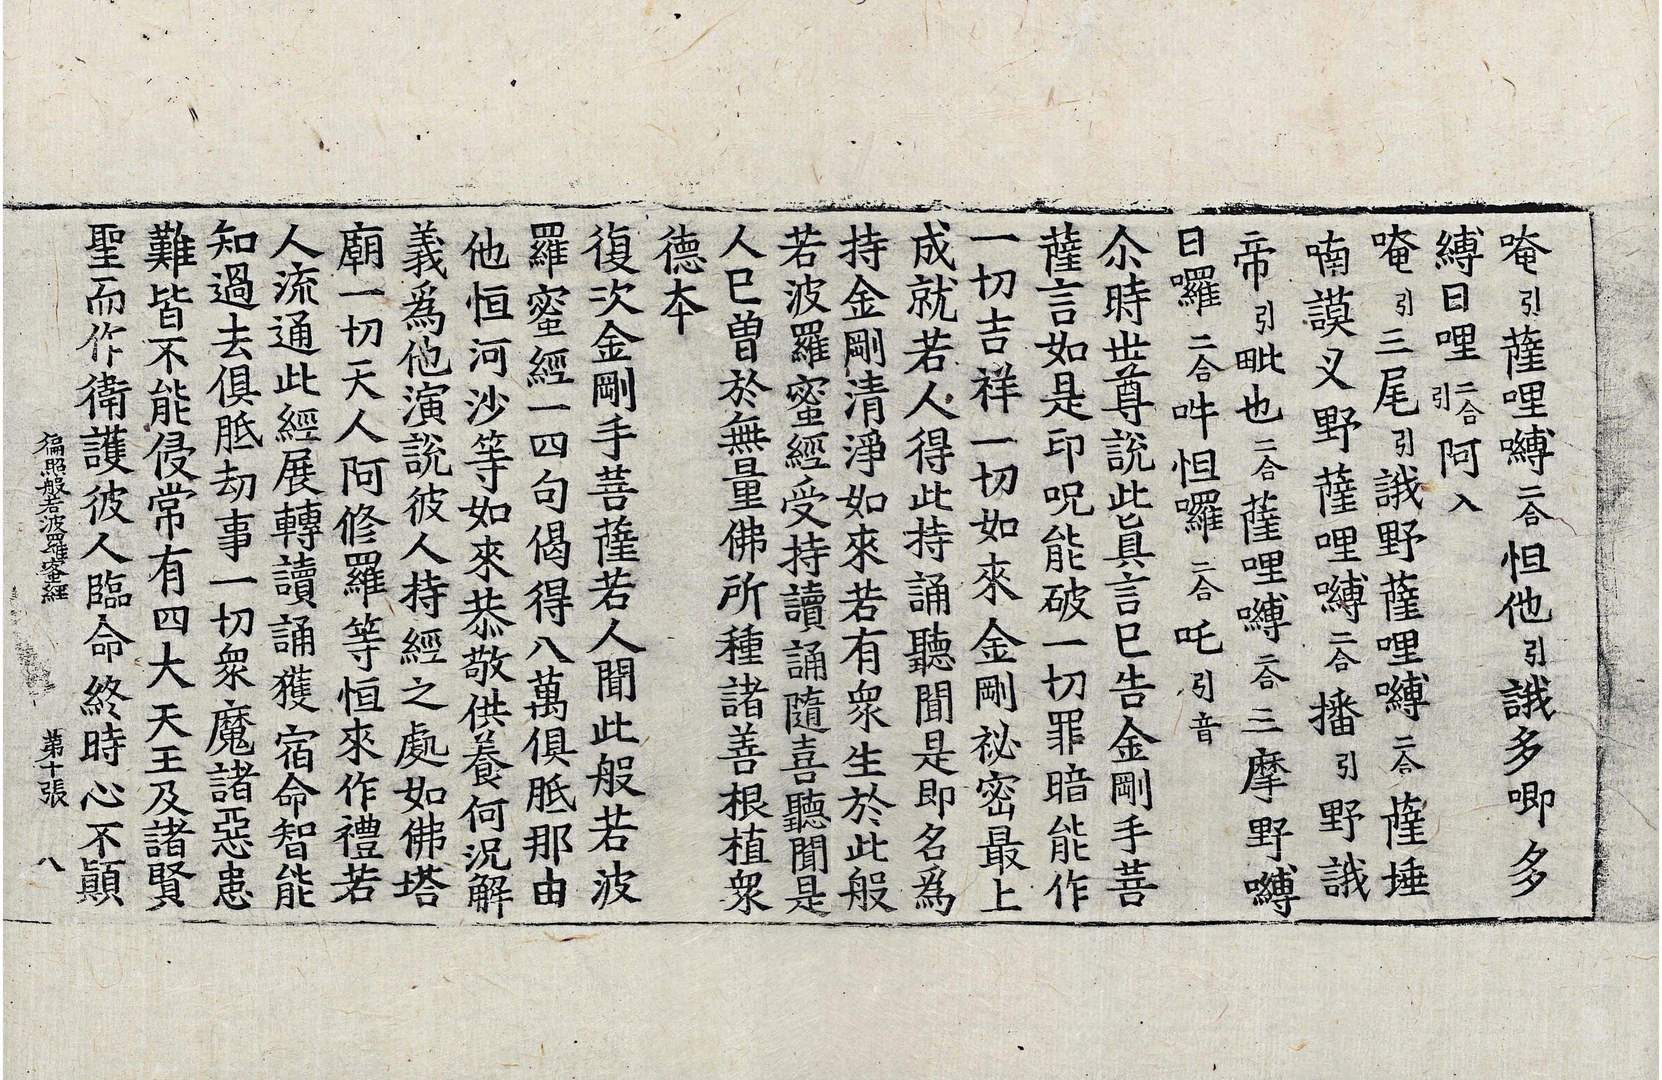 唵引薩哩嚩二合怛他引誐多唧多
縛日哩二合引阿入
唵引三尾引誐野薩哩嚩二合薩埵
喃謨叉野薩哩嚩二合播引野誐
帝引毗也二合薩哩嚩二合三摩野嚩
日囉二合吽怛囉二合吒引音
尒時世尊說此眞言已告金剛手菩
薩言如是印呪能破一切罪暗能作
一切吉祥一切如來金剛祕密最上
成就若人得此持誦聽聞是即名爲
持金剛清淨如來若有衆生於此般
若波羅蜜經受持讀誦隨喜聽聞是
人已曾於無量佛所種諸善根植衆
德本
復次金剛手菩薩若人聞此般若波
羅蜜經一四句偈得八萬俱胝那由
他恒河沙等如來恭敬供養何況解
義爲他演說彼人持經之處如佛塔
廟一切天人阿修羅等恒來作禮若
人流通此經展轉讀誦獲宿命智能
知過去俱胝劫事一切衆魔諸惡患
難皆不能侵常有四大天王及諸賢
聖而作衛護彼人臨命終時心不顚
徧照般若波羅蜜經 第十張 八